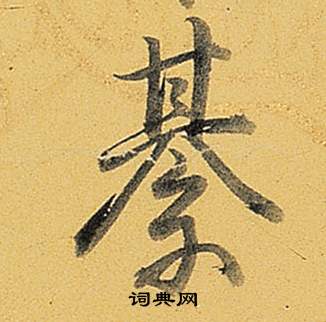 綦
词典网